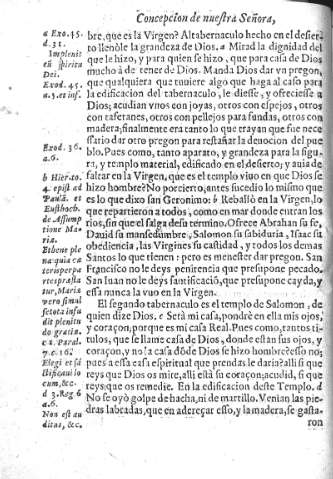 Concepcion de nuestra Señora,
bre, que es la Virgen? Al tabernaculo hecho en el desier-
to llenòle la grandeza de Dios. a Mirad la dignidad del
que le hizo, y para quien se hizo, que para casa de Dios
mucho à de tener de Dios. Manda Dios dar vn pregon,
que qualquiera que tuuiere algo que haga al caso para
la edificacion del tabernaculo, le diesse, y ofreciesse a
Dios; acudian vnos con joyas, otros con espejos, otros
con tafetanes, otros con pellejos para fundas, otros con
madera; finalmente era tanto lo que trayan que fue nece
ssario dar otro pregon para restañar la deuocion del pue
blo. Pues como, tanto aparato, y grandeza para la figu-
ra, y templo material, edificado en el desierto; y auia de
faltar en la Virgen, que es el templo viuo en que Dios se
hizo hombre? No por cierto; antes sucedio lo mismo que
es lo que dixo san Geronimo: b Rebalsò en la Virgen, lo
que repartieron a todos, como en mar donde entran los
rios, sin que el salga de su término. Ofrece Abrahan su fe,
Dauid su mansedumbre, Salomon su sabiduria, Isaac su
obediencia, las Virgines su castidad, y todos los demas
Santos lo que tienen: pero es menester dar pregon. San
Francisco no le deys penitencia que presupone pecado.
San Iuan no le deys santificaciõ, que presupone cayda, y
essa nunca la vuo en la Virgen.
El segundo tabernaculo es el templo de Salomon, de
quien dize Dios. c Serà mi casa, pondrè en ella mis ojos,
y coraçon, porque es mi casa Real. Pues como, tantos ti-
tulos, que se llame casa de Dios, donde estan sus ojos, y
coraçon, y no la casa dõde Dios se hizo hombre? esso no;
pues a essa casa espiritual que prendas le daria? alli si que
reys que Dios os mire, alli està su coraçon; acudid, si que
reys; que os remedie. En la edificacion deste Templo. d
No se oyò golpe de hacha, ni de martillo. Venian las pie
dras labradas, que en adereçar esso, y la madera, se gasta-
ron
a Exo. 45.
d. 31.
Implenit
eũ spiritu
Dei.
Exod. 45.
a. 5. et inf.
Exod. 36.
a. 6.
b Hiero.
4. epist ad
Paulã. et
Eustoch.
de Assump
tione Ma-
ria.
c 2. Paral.
7. c. 16.
Elegi et sã
ctificaui lo
cum, &c.
d 3. Reg 6
a. 6.
Non est au
ditus, &c.